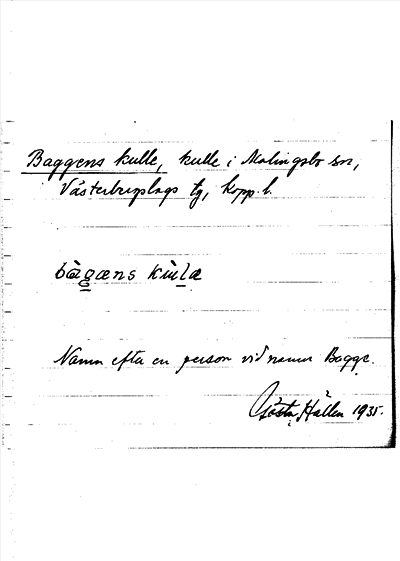 Baggens kulle, kulle i Malingsbo sn,
Västerbergslags tg, Kopp. l.
bàgæns kùlæ
Namn efter en person vid namn Bagge.
Gösta Hallen 1935.